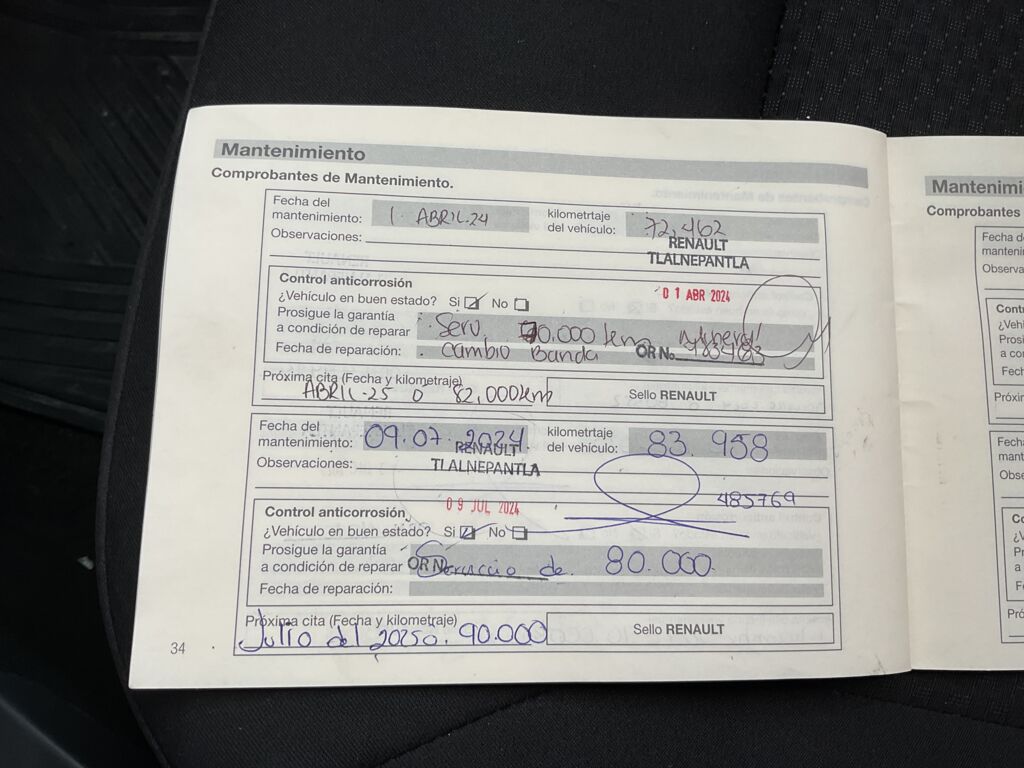 Mantenimiento
Comprobantes de Mantenimiento.
Fecha del mantenimiento: 1 ABRIL.24 kilometrtaje del vehículo: 72,462
RENAULT
TLALNEPANTLA
Observaciones:
Control anticorrosión
01 ABR 2024
¿Vehículo en buen estado? Si No
Prosigue la garantía
a condición de reparar Serv. 70.000 km mineral
Fecha de reparación: Cambio Banda OR No.
Próxima cita (Fecha y kilometraje)
ABRIL-25 o 82,000km
Sello RENAULT
Fecha del mantenimiento: 09.07.2024 kilometrtaje del vehículo: 83.958
RENAULT
TLALNEPANTLA
Observaciones:
485769
09 JUL 2024
Control anticorrosión
¿Vehículo en buen estado? Si No
Prosigue la garantía
a condición de reparar OR No. Servicio de 80.000
Fecha de reparación:
Próxima cita (Fecha y kilometraje)
Julio del 2025 o. 90.000
Sello RENAULT
34
Mantenimi
Comprobantes
Fecha d
manteni
Observa
Cont
¿Veh
Prosi
a con
Fech
Próxir
Fecha
mant
Obse
Co
¿V
Pr
a
F
Pró